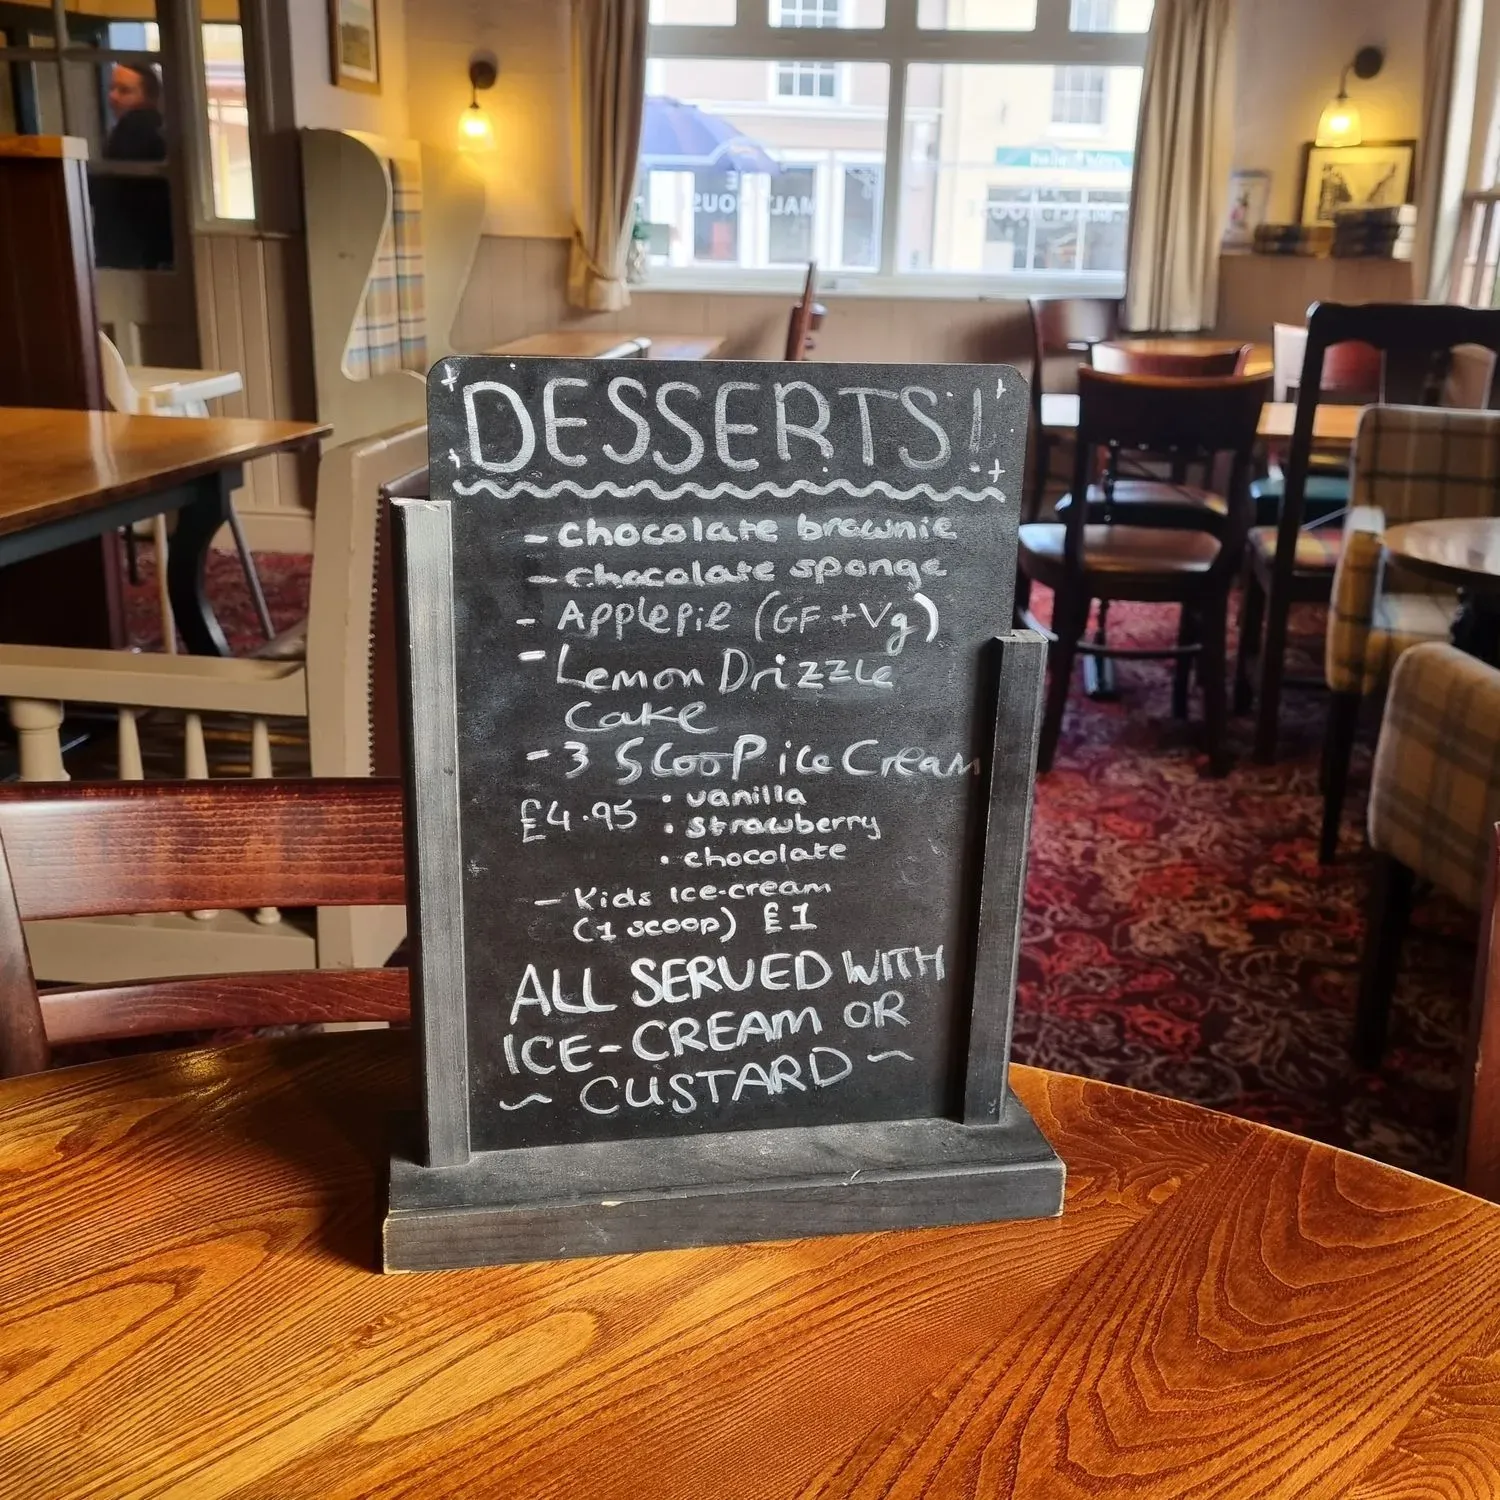 DESSERTS!
- chocolate brownie
- chocolate sponge
- Applepie (GF + Vg)
- Lemon Drizzle
Cake
- 3 Scoop ice Cream
£4.95 • vanilla
• strawberry
• chocolate
- Kids Ice-cream
(1 scoop) £1
ALL SERVED WITH
ICE-CREAM OR
~ CUSTARD ~